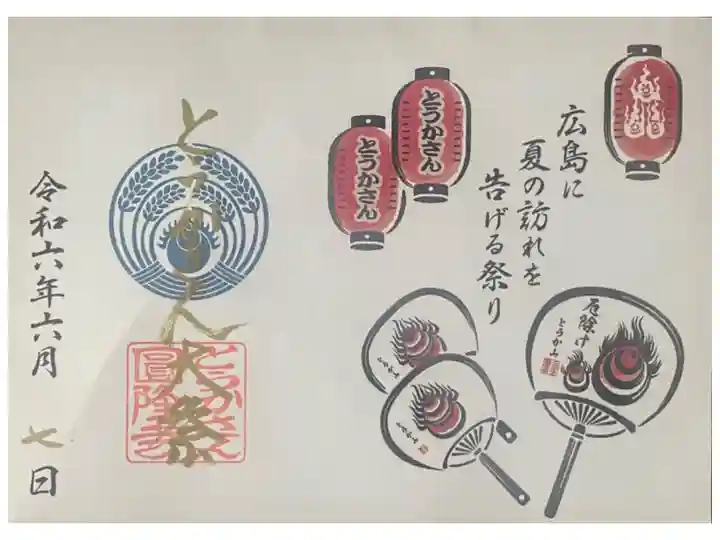 広島に
夏の訪れを
告げる祭り
とうかさん
とうかさん
厄除け
とうかさん
とうかさん大祭
圓隆寺
とうかさん
令和六年六月七日